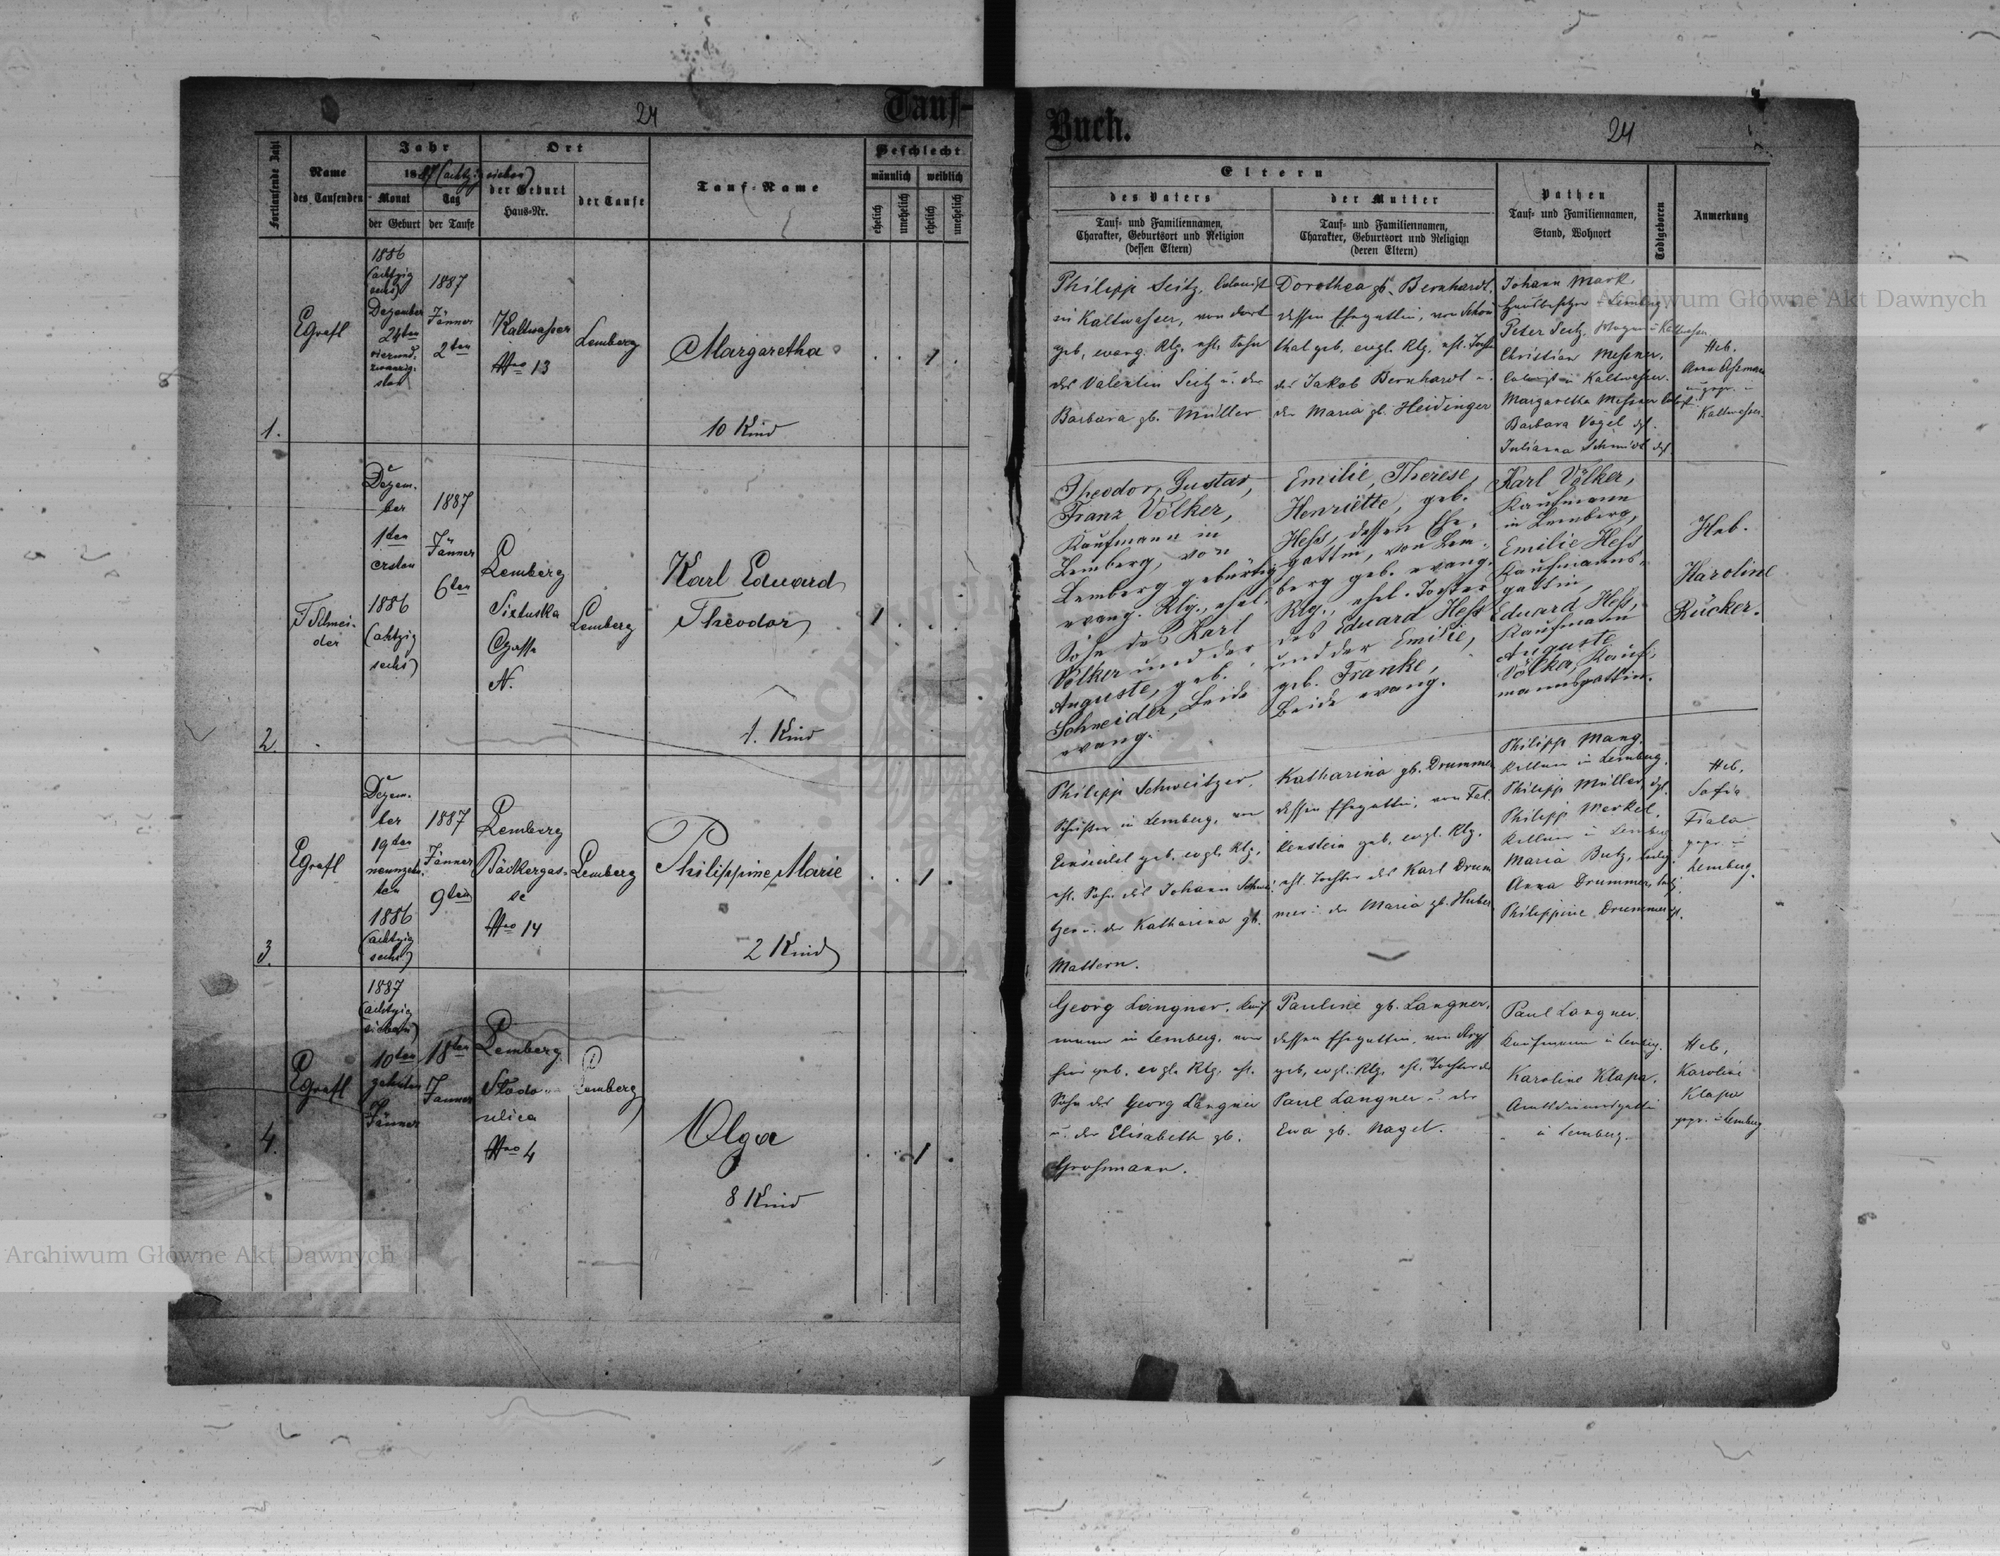 24
Tauf-
Fortlaufende Zahl
Name
des Taufenden
Jahr
1887 (achtzig sieben)
Monat
der Geburt
Tag
der Taufe
Ort
der Geburt
Haus-Nr.
der Taufe
Tauf-Name
Geschlecht
männlich
weiblich
ehelich
unehelich
ehelich
unehelich
1.
EGrafl
1886
(achtzig
sechs)
Dezember
24ten
vierund-
zwanzig-
sten
1887
Jänner
2ten
Kaltwasser
Nro 13
Lemberg
Margaretha
10 Kind
1
2.
TSchnei-
der
Dezem-
ber
1ten
ersten
1886
(achtzig
sechs)
1887
Jänner
6ten
Lemberg
Sixtuska
Gasse
N.
Lemberg
Karl Eduard
Theodor
1. Kind
1
3.
EGrafl
Dezem-
ber
19ten
neunzehn-
ten
1886
(achtzig
sechs)
1887
Jänner
9ten
Lemberg
Bäckergas-
se
Nro 14
Lemberg
Philippine Marie
2 Kind
1
4.
EGrafl
1887
(achtzig
sieben)
10ten
zehnten
Jänner
18ten
Jänner
Lemberg
ulica
Nro 4
Lemberg
Olga
8 Kind
1
Buch.
24
Eltern
des Vaters
Tauf- und Familiennamen,
Charakter, Geburtsort und Religion
(dessen Eltern)
der Mutter
Tauf- und Familiennamen,
Charakter, Geburtsort und Religion
(deren Eltern)
Pathen
Tauf- und Familiennamen,
Stand, Wohnort
Todtgeboren
Anmerkung
Philipp Seitz, Colonist
in Kaltwasser, von dort
geb, evang. Rlg. ehl. Sohn
des Valentin Seitz u. der
Barbara gb. Müller
Dorothea gb. Bernhardt,
dessen Ehegattin, von Schön
thal geb, evgl. Rlg. ehl. Tochter
des Jakob Bernhardt u.
der Maria gb. Heidinger
Johann Mark
Lemberg
Peter Seitz, Kaltwasser.
Christian Messner,
Colonist in Kaltwasser.
Margaretha Messner
Barbara Vogel dgl.
Julianna Schmidt dgl.
Heb.
Anna
Kaltwasser
Theodor, Gustav,
Franz Völker,
Kaufmann in
Lemberg, von
Lemberg gebürtig
evang. Rlg., ehel.
Sohn des Karl
Völker und der
Auguste, geb.
Schneider, Beide
evang.
Emilie, Therese,
Henriette, geb.
Hess, dessen Ehe-
gattin, von Lem-
berg geb. evang.
Rlg., ehel. Tochter
des Eduard Hess
und der Emilie,
geb. Franke,
Beide evang.
Karl Völker,
Kaufmann
in Lemberg,
Emilie Hess
Kaufmanns-
gattin,
Eduard Hess,
Kaufmann
Auguste
Völker, Kauf-
mannsgattin.
Heb.
Karoline
Rücker.
Philipp Schweitzer,
Schuster in Lemberg, von
Einsiedel geb. evgl. Rlg.,
ehl. Sohn des Johann Schwei
zer u. der Katharina gb.
Mattern.
Katharina gb. Drummer
dessen Ehegattin, von Fal
kenstein geb, evgl. Rlg.
ehl. Tochter des Karl Drum
mer u. der Maria gb. Huber
Philipp Mang,
Kellner in Lemberg.
Philipp Müller, dgl.
Philipp Merkel,
Kellner in Lemberg
Maria Butz, ledig
Anna Drummer, ledig
Philippine Drummer dgl.
Heb.
Sofie
Fiala
gepr. in
Lemberg.
Georg Langner, Kauf
mann in Lemberg, von
geb. evgl. Rlg. ehl.
Sohn des Georg Langner
u. der Elisabeth gb.
Grossmann.
Pauline gb. Langner,
dessen Ehegattin, von
geb, evgl. Rlg, ehl. Tochter des
Paul Langner u. der
Ewa gb. Nagel.
Paul Langner,
Kaufmann in Lemberg.
Karoline Klapa,
Amtsdienersgattin
in Lemberg.
Heb.
Karoline
Klapa
gepr. in Lemberg
Archiwum Główne Akt Dawnych
Archiwum Główne Akt Dawnych